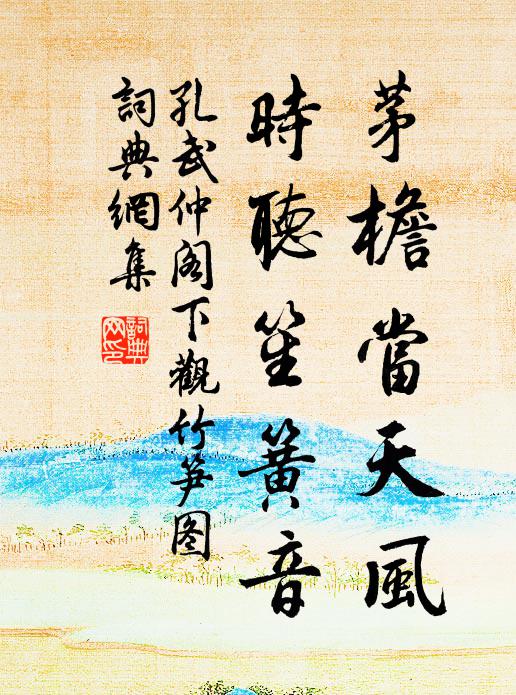 茅檐當天風
時聽笙簧音
孔武仲阁下觀竹笋图
詞典網集
詞典网印